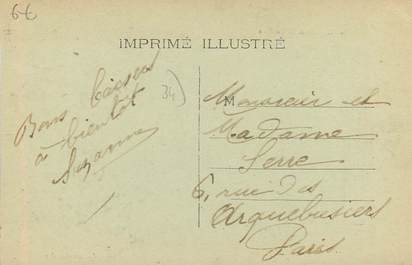 6€
IMPRIMÉ ILLUSTRÉ
Bons baisers
à bientôt
Suzanne
34)
Monsieur et
Madame
Serre
6, rue des
Arquebusiers
Paris.